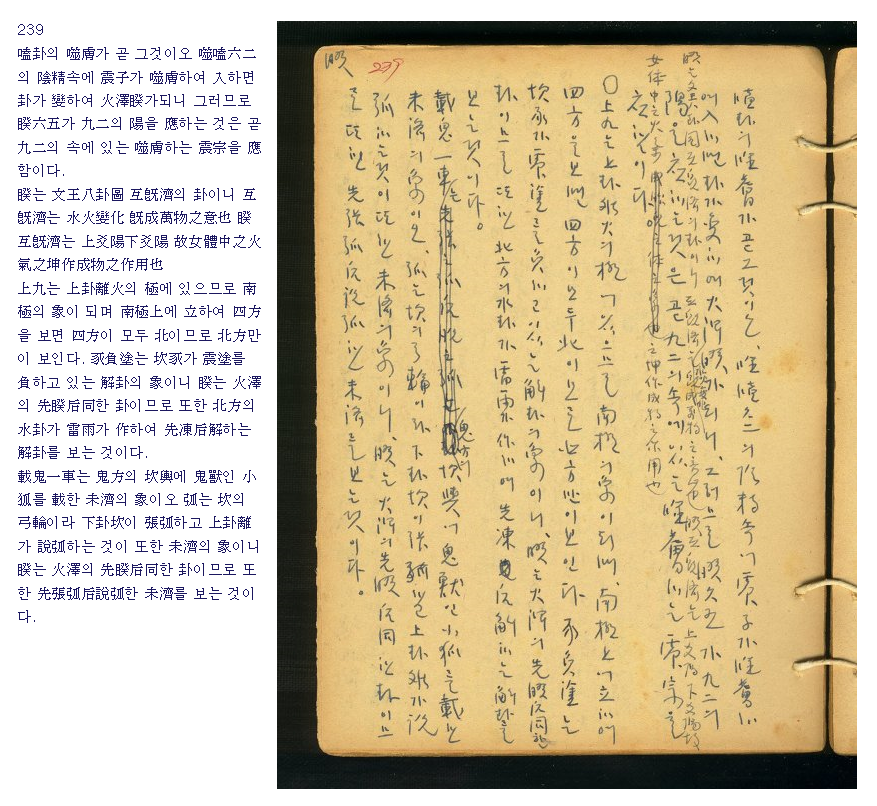 239
嗑卦의 噬膚가 곧 그것이오 噬嗑六二
의 陰精속에 震子가 噬膚하여 入하면
卦가 變하여 火澤睽가되니 그러므로
睽六五가 九二의 陽을 應하는 것은 곧
九二의 속에 있는 噬膚하는 震宗을 應
함이다.
睽는 文王八卦圖 互旣濟의 卦이니 互
旣濟는 水火變化 旣成萬物之意也 睽
互旣濟는 上爻陽下爻陽 故女體中之火
氣之坤作成物之作用也
上九는 上卦離火의 極에 있으므로 南
極의 象이 되며 南極上에 立하여 四方
을 보면 四方이 모두 北이므로 北方만
이 보인다. 豕負塗는 坎豕가 震塗를
負하고 있는 解卦의 象이니 睽는 火澤
의 先睽后同한 卦이므로 또한 北方의
水卦가 雷雨가 作하여 先凍后解하는
解卦를 보는 것이다.
載鬼一車는 鬼方의 坎輿에 鬼獸인 小
狐를 載한 未濟의 象이오 弧는 坎의
弓輪이라 下卦坎이 張弧하고 上卦離
가 說弧하는 것이 또한 未濟의 象이니
睽는 火澤의 先睽后同한 卦이므로 또
한 先張弧后說弧한 未濟를 보는 것이
다.
睽 239
嗑卦의 噬膚가 곧 그것이오, 噬嗑六二의 陰精속에 震子가 噬膚하
여 入하면 卦가 變하여 火澤睽가 되니, 그러므로 睽六五가 九二의
陽을 應하는 것은 곧 九二의 속에 있는 噬膚하는 震宗을
應함이다.
睽는 文王八卦圖 互旣濟의 卦이니 互旣濟는 水火變化 旣成萬物之意也 睽互旣濟는 上爻陽下爻陽故
女体中之火氣 之坤作成物之作用也
○上九는 上卦離火의 極에 있으므로 南極의 象이 되며, 南極上에 立하여
四方을 보면 四方이 모두 北이므로 北方만이 보인다. 豕負塗는
坎豕가 震塗를 負하고 있는 解卦의 象이니, 睽는 火澤의 先睽后同한
卦이므로 또한 北方의 水卦가 雷雨가 作하여 先凍后解하는 解卦를
보는 것이다.
載鬼一車는 鬼方의 坎輿에 鬼獸인 小狐를 載한
未濟의 象이오, 弧는 坎의 弓輪이라 下卦坎이 張弧하고 上卦離가 說
弧하는 것이 또한 未濟의 象이니, 睽는 火澤의 先睽后同한 卦이므
로 또한 先張弧后說弧한 未濟를 보는 것이다.